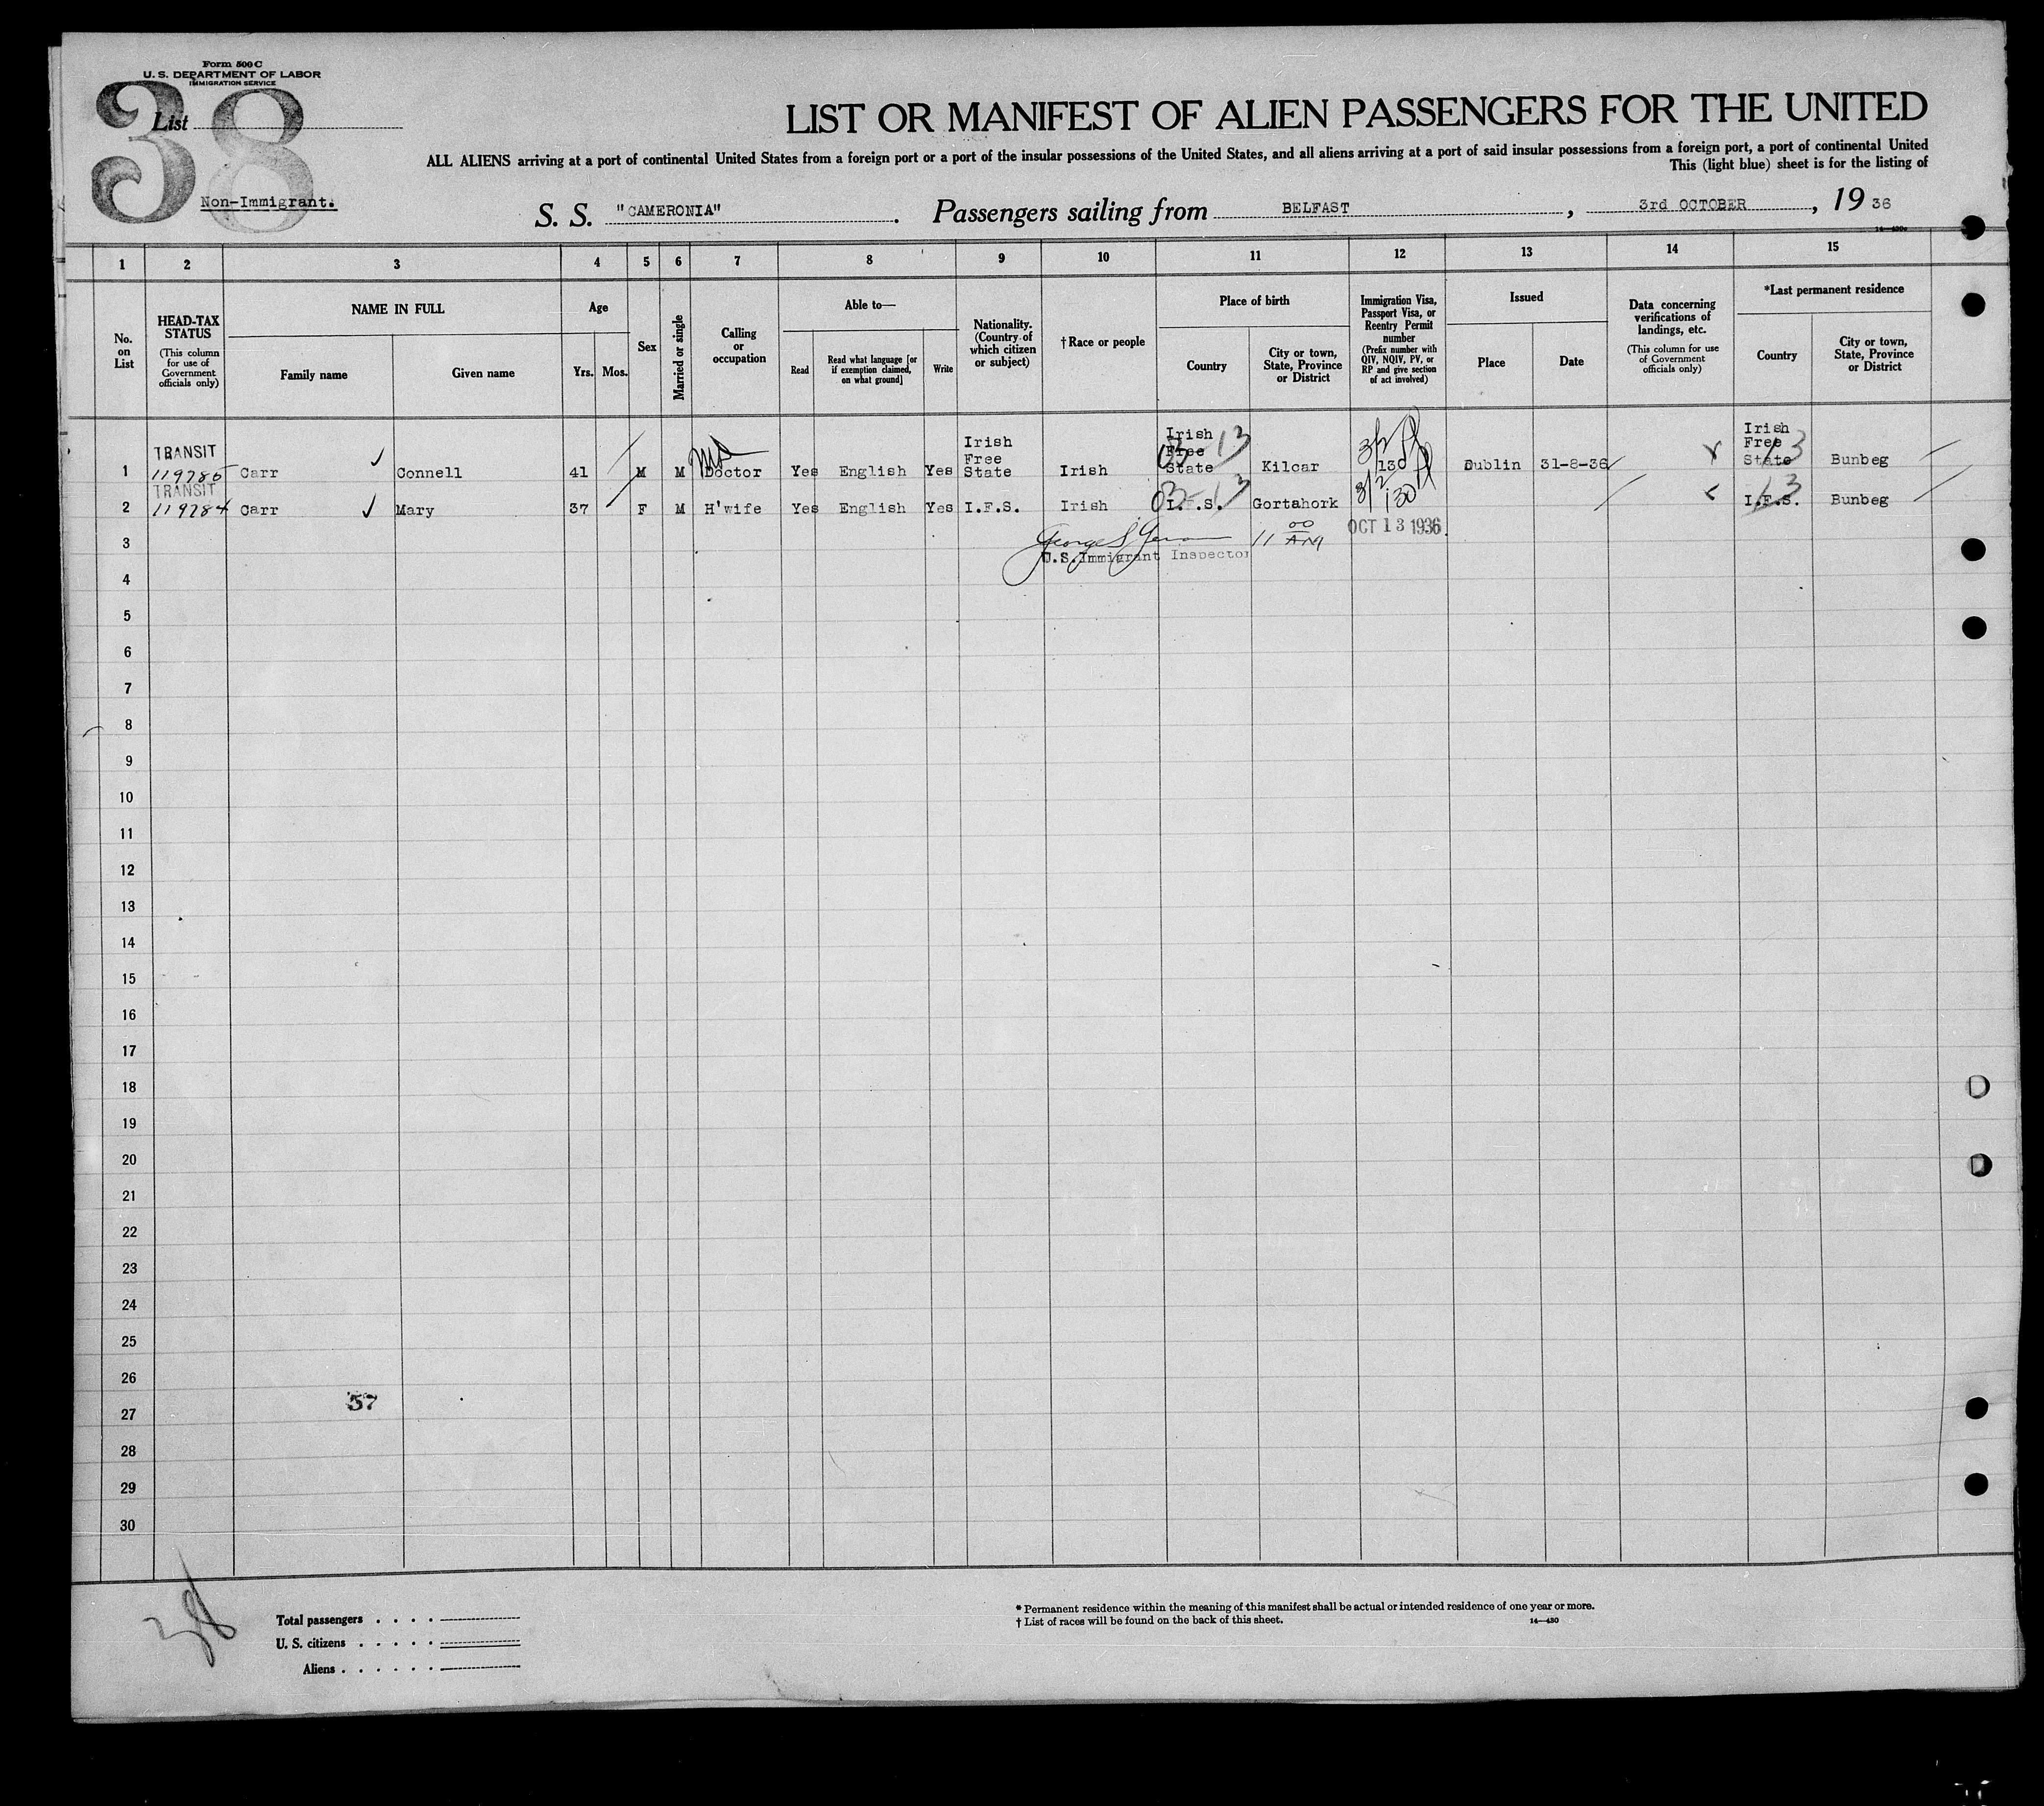 Form 500 C
U. S. DEPARTMENT OF LABOR
IMMIGRATION SERVICE
38
List
Non-Immigrant.
LIST OR MANIFEST OF ALIEN PASSENGERS FOR THE UNITED
ALL ALIENS arriving at a port of continental United States from a foreign port or a port of the insular possessions of the United States, and all aliens arriving at a port of said insular possessions from a foreign port, a port of continental United
This (light blue) sheet is for the listing of
S. S. "CAMERONIA" . Passengers sailing from BELFAST , 3rd OCTOBER , 19 36
1 2 3 4 5 6 7 8 9 10 11 12 13 14 15
No. on List
HEAD-TAX STATUS
(This column for use of Government officials only)
NAME IN FULL
Family name
Given name
Age
Yrs. Mos.
Sex
Married or single
Calling or occupation
Able to—
Read
Read what language [or if exemption claimed, on what ground]
Write
Nationality. (Country of which citizen or subject)
† Race or people
Place of birth
Country
City or town, State, Province or District
Immigration Visa, Passport Visa, or Reentry Permit number
(Prefix number with QIV, NQIV, PV, or RP and give section of act involved)
Issued
Place
Date
Data concerning verifications of landings, etc.
(This column for use of Government officials only)
*Last permanent residence
Country
City or town, State, Province or District
1 TRANSIT 119785 Carr Connell 41 M M Doctor Yes English Yes Irish Free State Irish Irish Free State Kilcar 130 Dublin 31-8-36 Irish Free State Bunbeg
2 TRANSIT 119784 Carr Mary 37 F M H'wife Yes English Yes I.F.S. Irish I.F.S. Gortahork 130 I.F.S. Bunbeg
OCT 13 1936
3 George 11 00 AM
U.S. Immigrant Inspector
4
5
6
7
8
9
10
11
12
13
14
15
16
17
18
19
20
21
22
23
24
25
26
57
27
28
29
30
38
Total passengers . . . .
U. S. citizens . . . . .
Aliens . . . . . .
* Permanent residence within the meaning of this manifest shall be actual or intended residence of one year or more.
† List of races will be found on the back of this sheet.
14—430